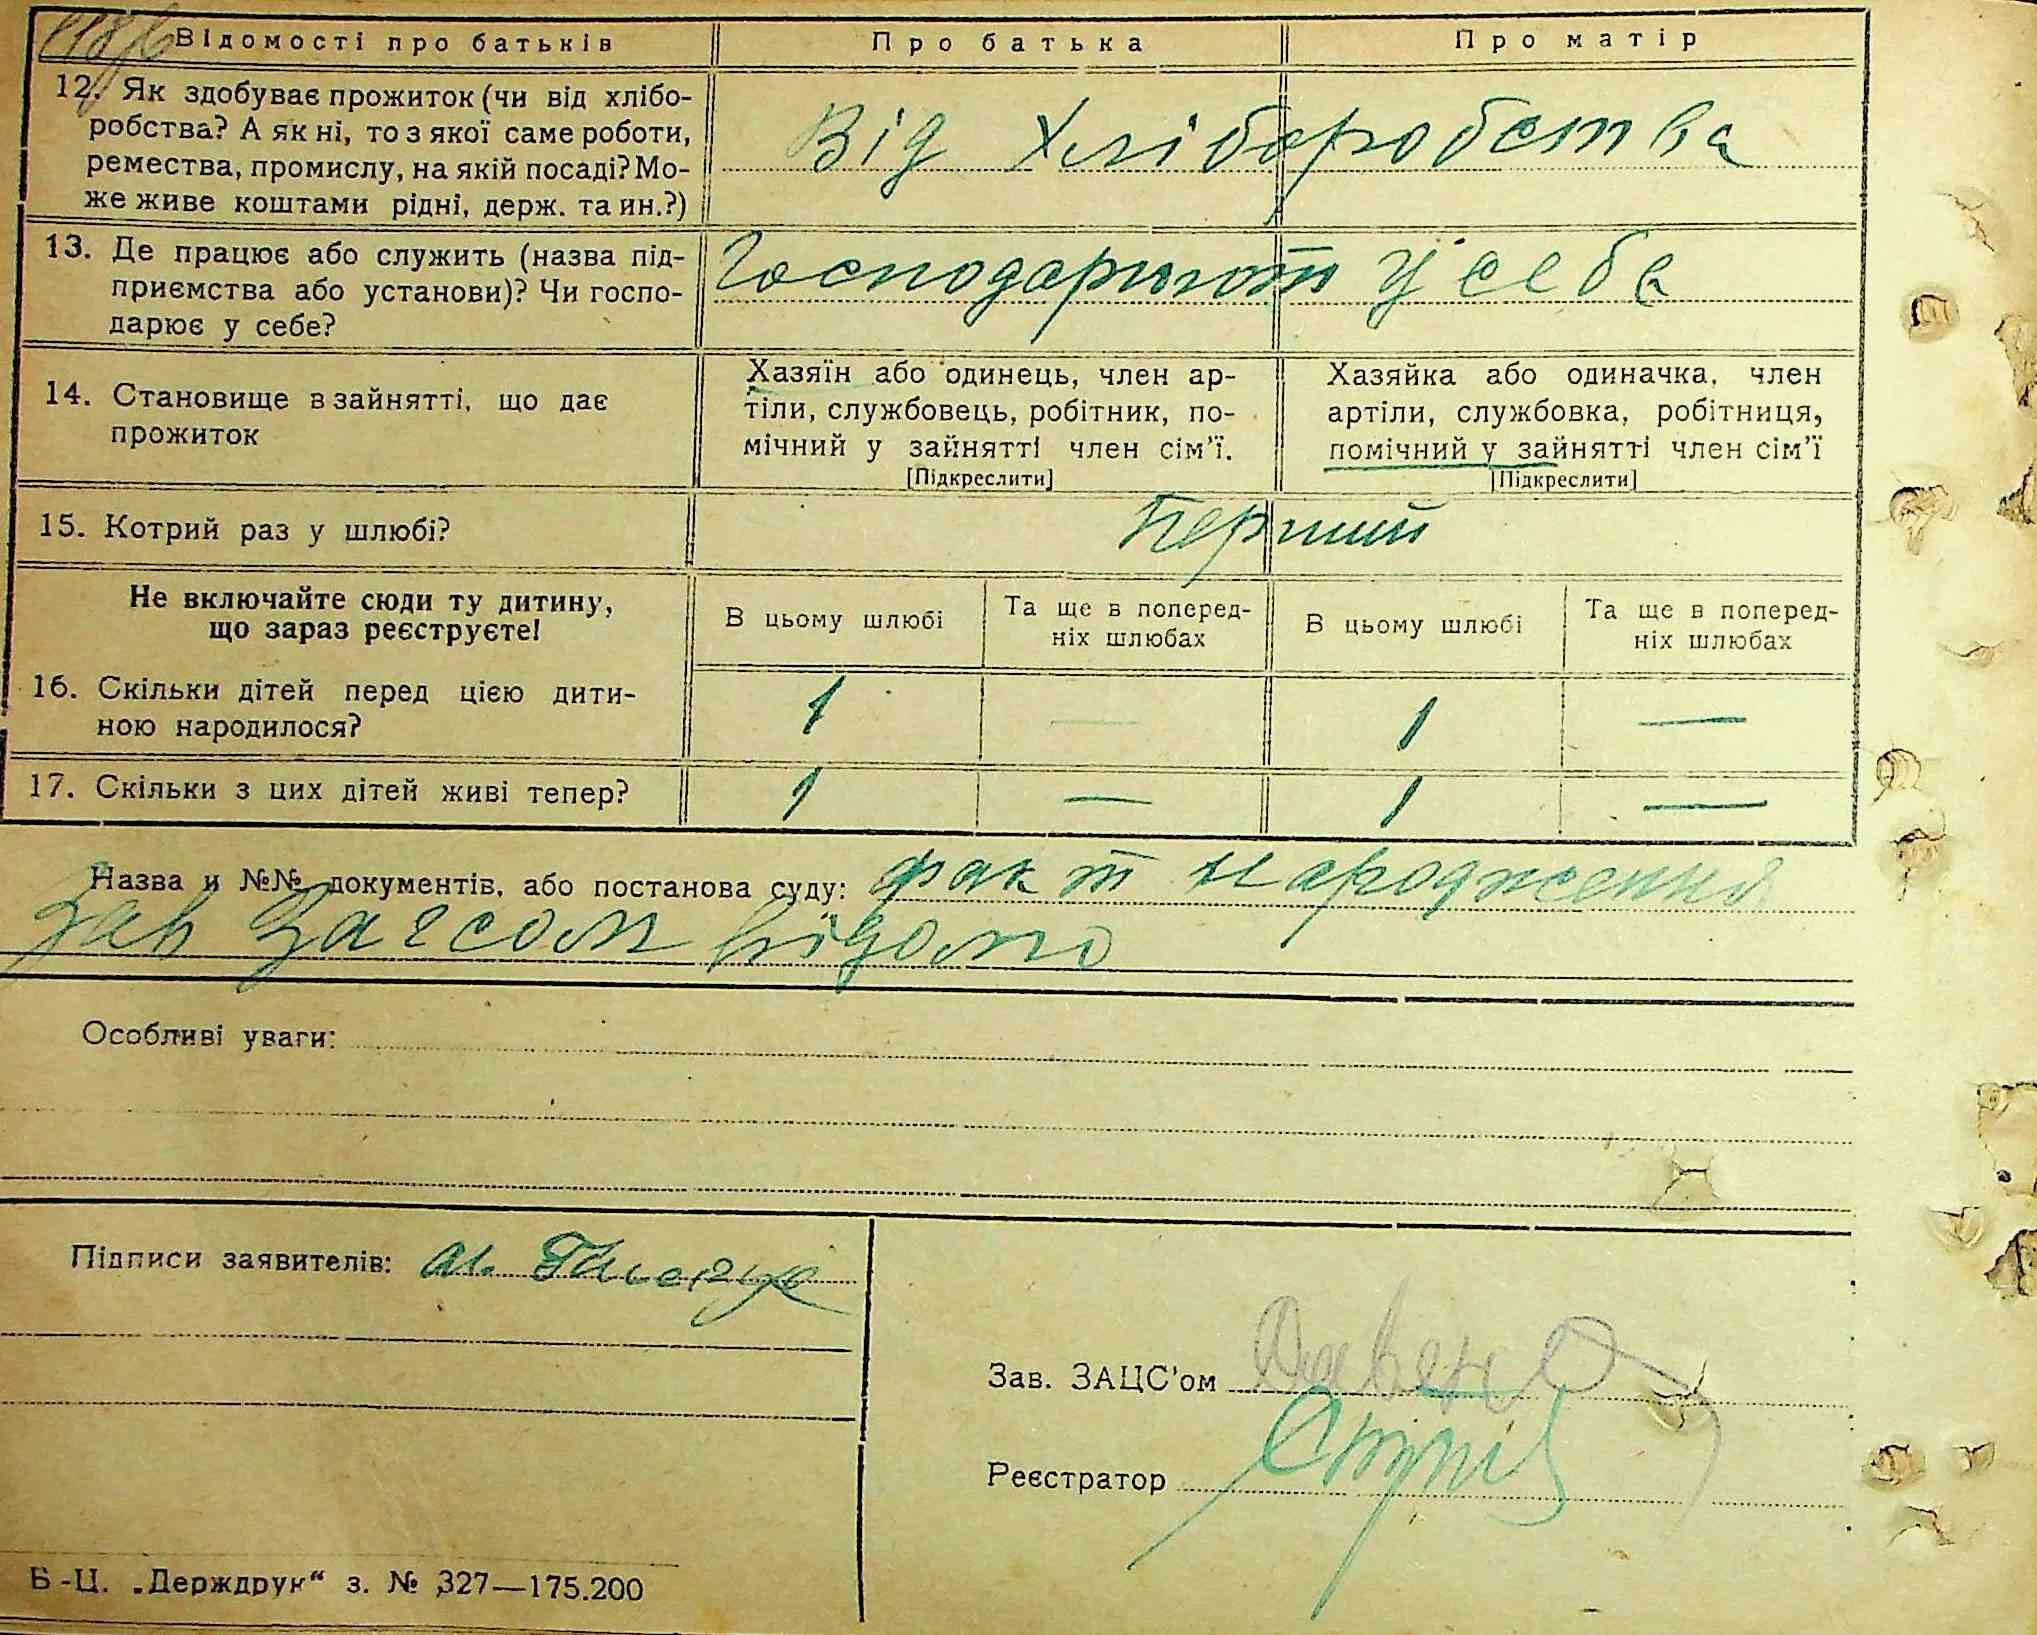 Відомості про батьків Про батька Про матір
12. Як здобуває прожиток (чи від хлібо-
робства? А як ні, то з якої саме роботи,
ремества, промислу, на якій посаді? Мо-
же живе коштами рідні, держ. та ин.?)
Від Хліборобства
13. Де працює або служить (назва під-
приємства або установи)? Чи госпо-
дарює у себе?
Господарюют у себе
14. Становище в зайнятті, що дає
прожиток
Хазяїн або одинець, член ар-
тіли, службовець, робітник, по-
мічний у зайнятті член сім'ї.
[Підкреслити]
Хазяйка або одиначка, член
артіли, службовка, робітниця,
помічний у зайнятті член сім'ї
[Підкреслити]
15. Котрий раз у шлюбі?
Перший
Не включайте сюди ту дитину,
що зараз реєструєте!
В цьому шлюбі
Та ще в поперед-
ніх шлюбах
В цьому шлюбі
Та ще в поперед-
ніх шлюбах
16. Скільки дітей перед цією дити-
ною народилося?
1 — 1 —
17. Скільки з цих дітей живі тепер?
1 — 1 —
Назва и №№ документів, або постанова суду: факт народження
Зав Загсом відомо
Особливі уваги:
Підписи заявителів:
Зав. ЗАЦС'ом
Реєстратор
Б-Ц. „Держдрук“ з. № 327—175.200